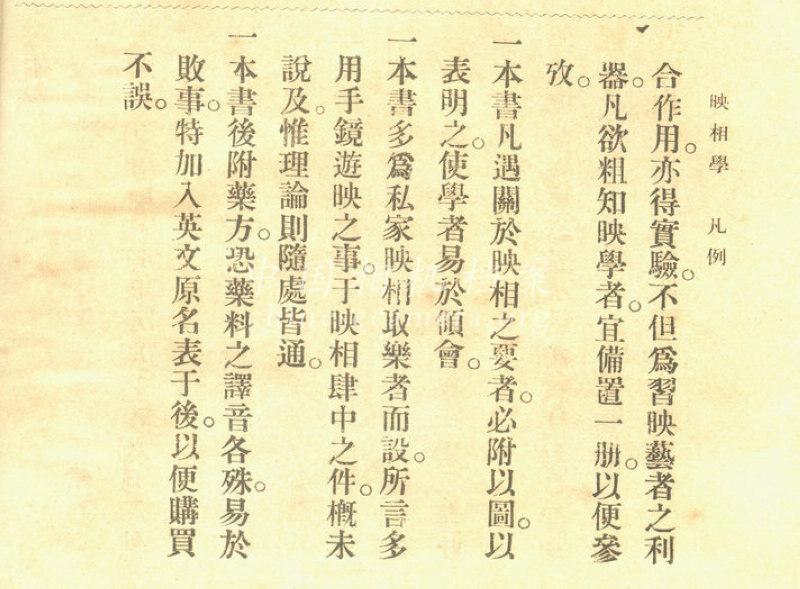 映相學 凡例
合作用。亦得實驗。不但爲習映藝者之利
器。凡欲粗知映學者。宜備置一册。以便參
攷。
一本書凡遇關於映相之要者。必附以圖。以
表明之。使學者易於領會。
一本書多爲私家映相取樂者而設。所言多
用手鏡遊映之事。于映相肆中之件。概未
說及。惟理論則隨處皆通。
一本書後附藥方。恐藥料之譯音各殊。易於
敗事。特加入英文原名表于後。以便購買
不誤。